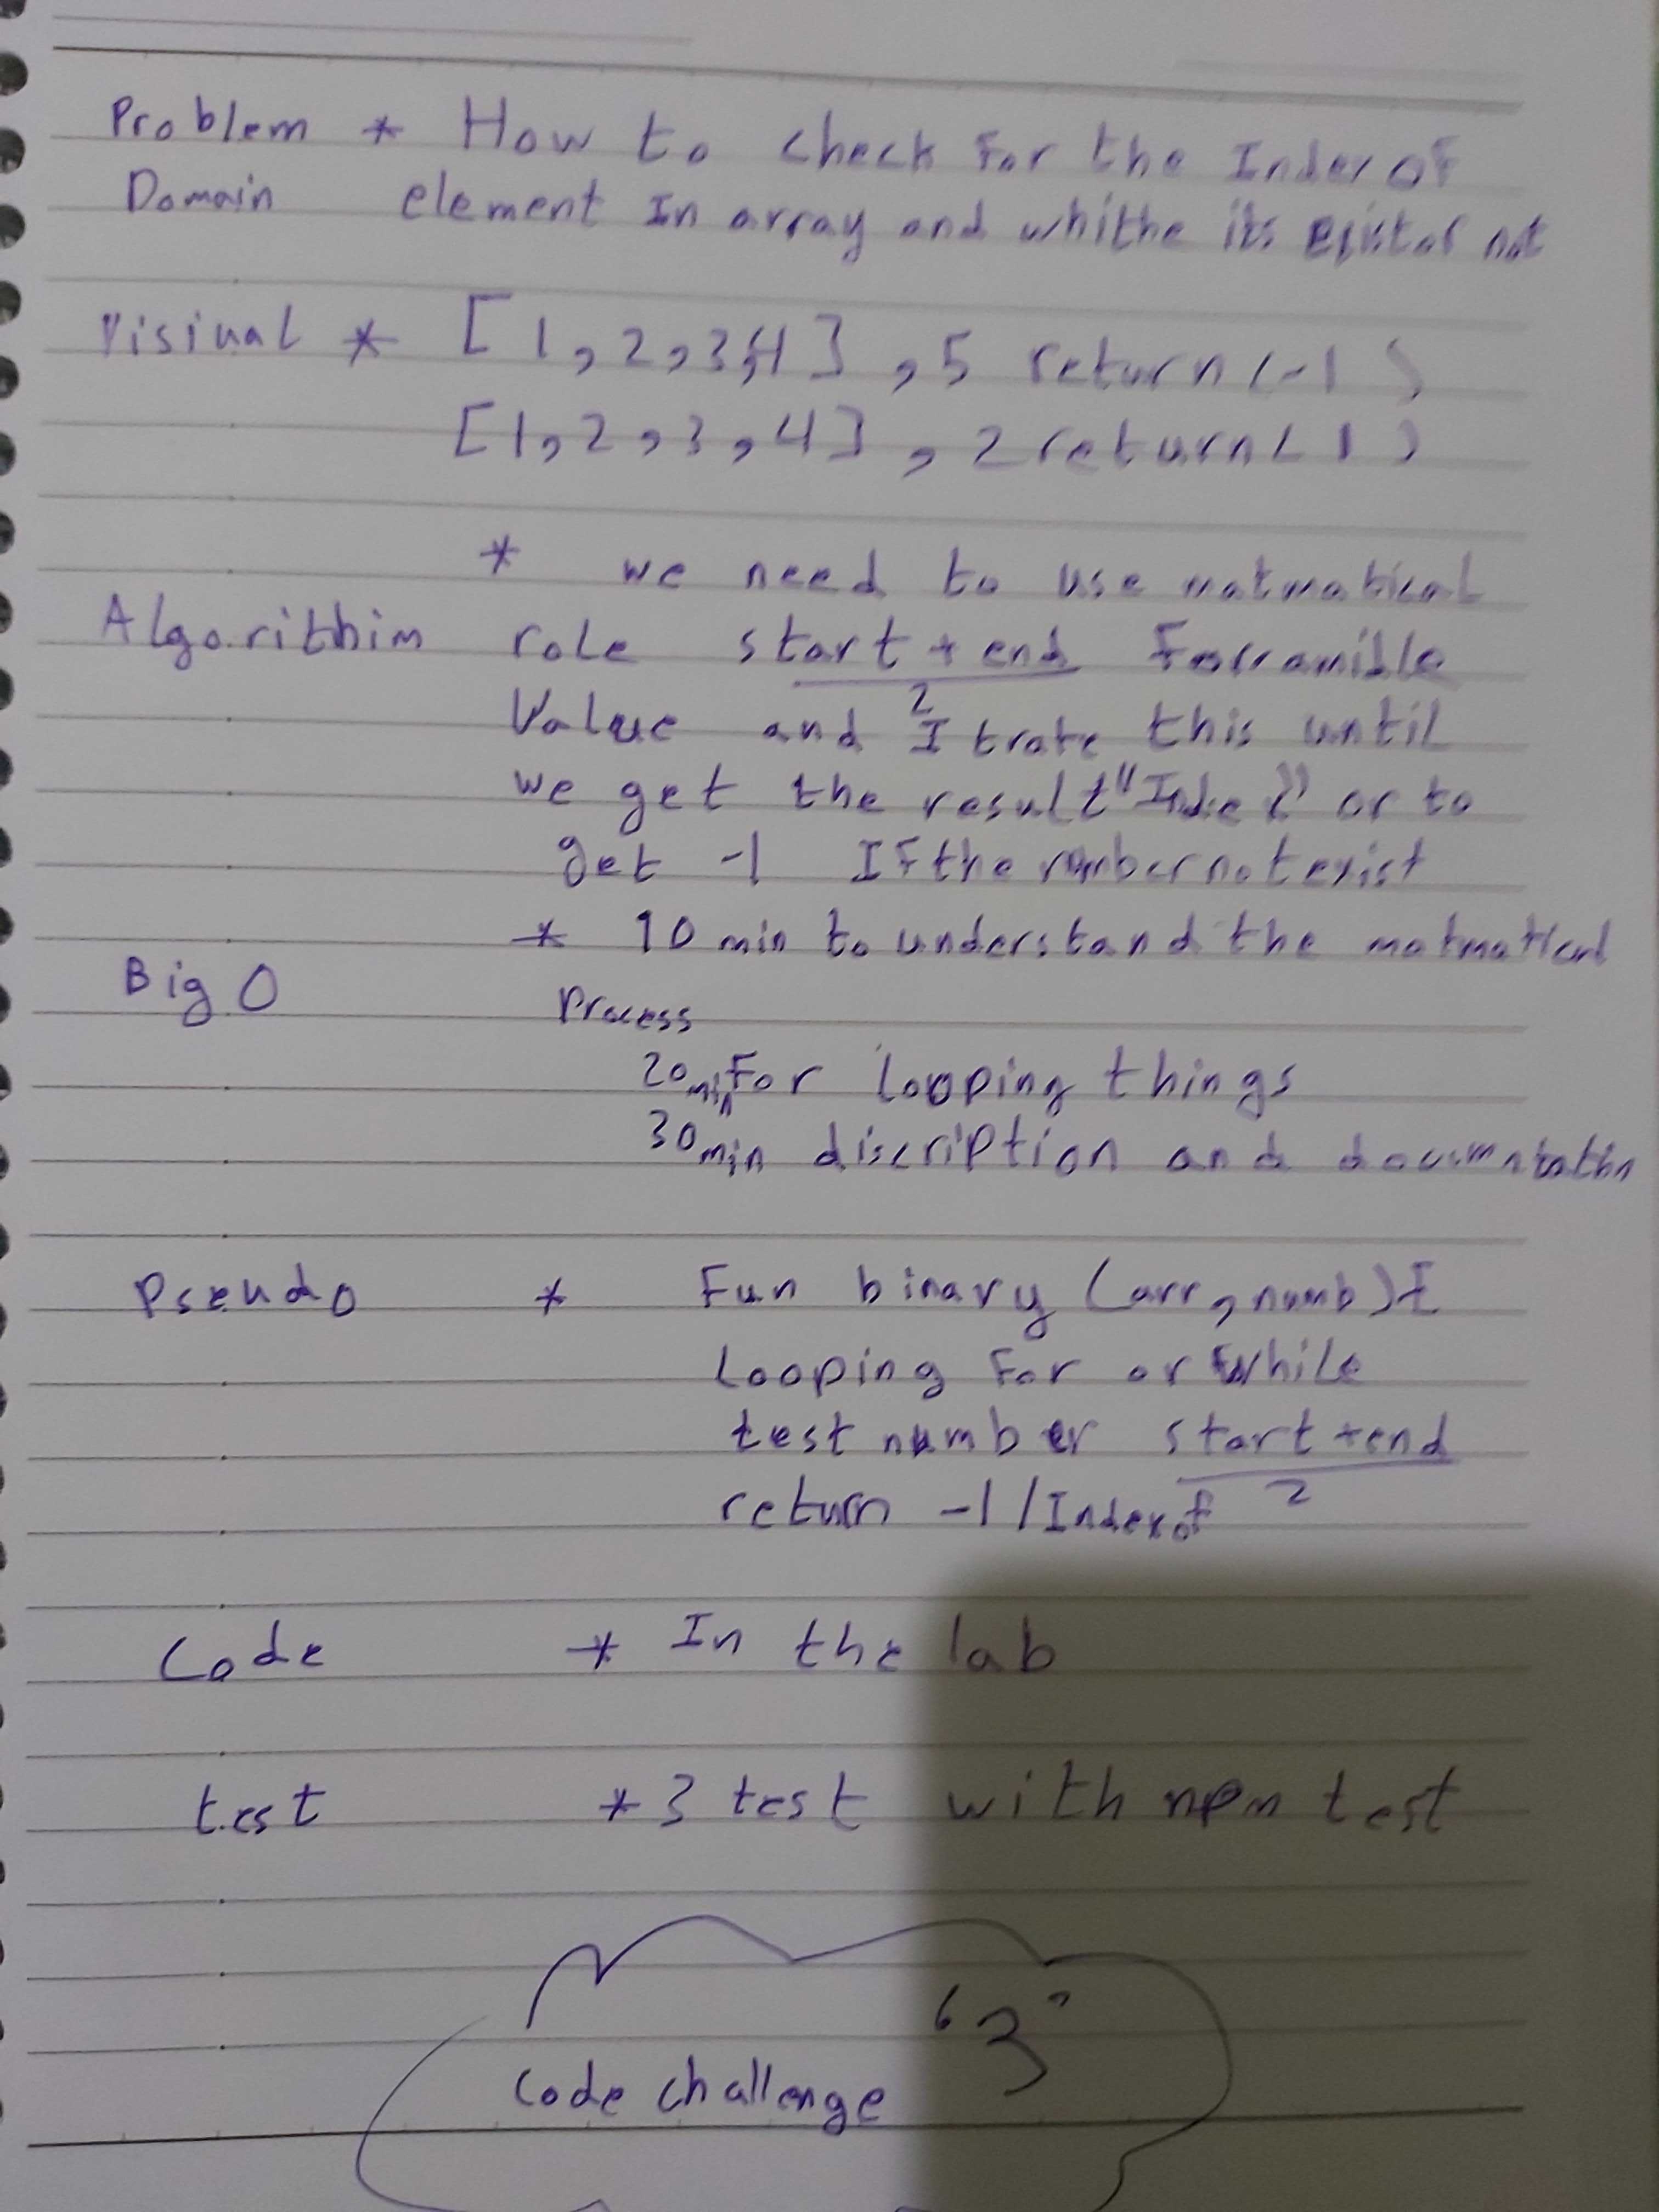 Problem * How to check For the Index of
Domain element In array and whithe its Existor not
Visiual * [1,2,3,4] , 5 return (-1)
[1,2,3,4] , 2 return (1)
* we need to use matmatical
Algorithim role start + end
2
Value and Itrate this until
we get the result "Index" or to
get -1 IF the number not exist
* 10 min to understand the matmatical
Big O Process
20 min For looping things
30 min discription and
Pseudo * Fun binary (arr, numb){
Looping For or While
test number start + end
2
return -1 / Index of
Code * In the lab
test * 3 test with npm test
Code challenge "3"